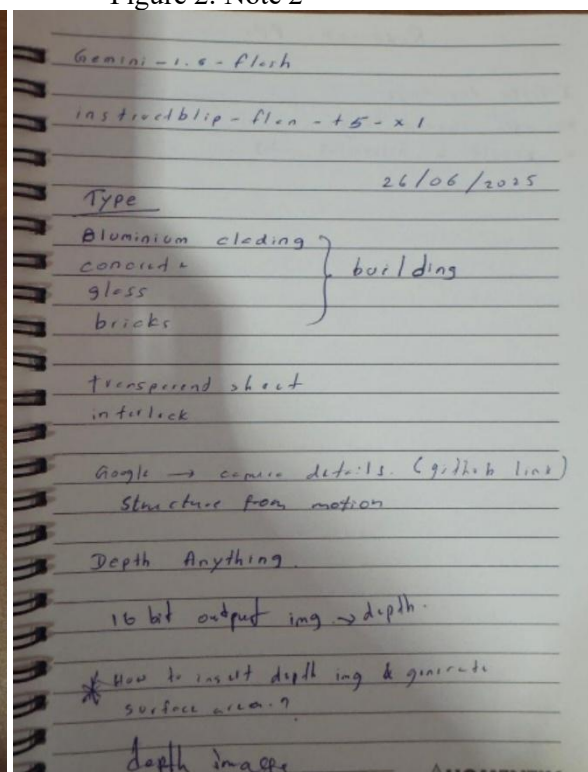 Figure 2: Note 2
Gemini-1.5-flash
instructblip-flan-t5-xl
26/06/2025
Type
Aluminium clading
concrete
glass
bricks
building
transperend sheet
interlock
Google → camera details. (github link)
structure from motion
Depth Anything.
16 bit output img → depth.
* How to insert depth img & generate
surface area.?
depth images